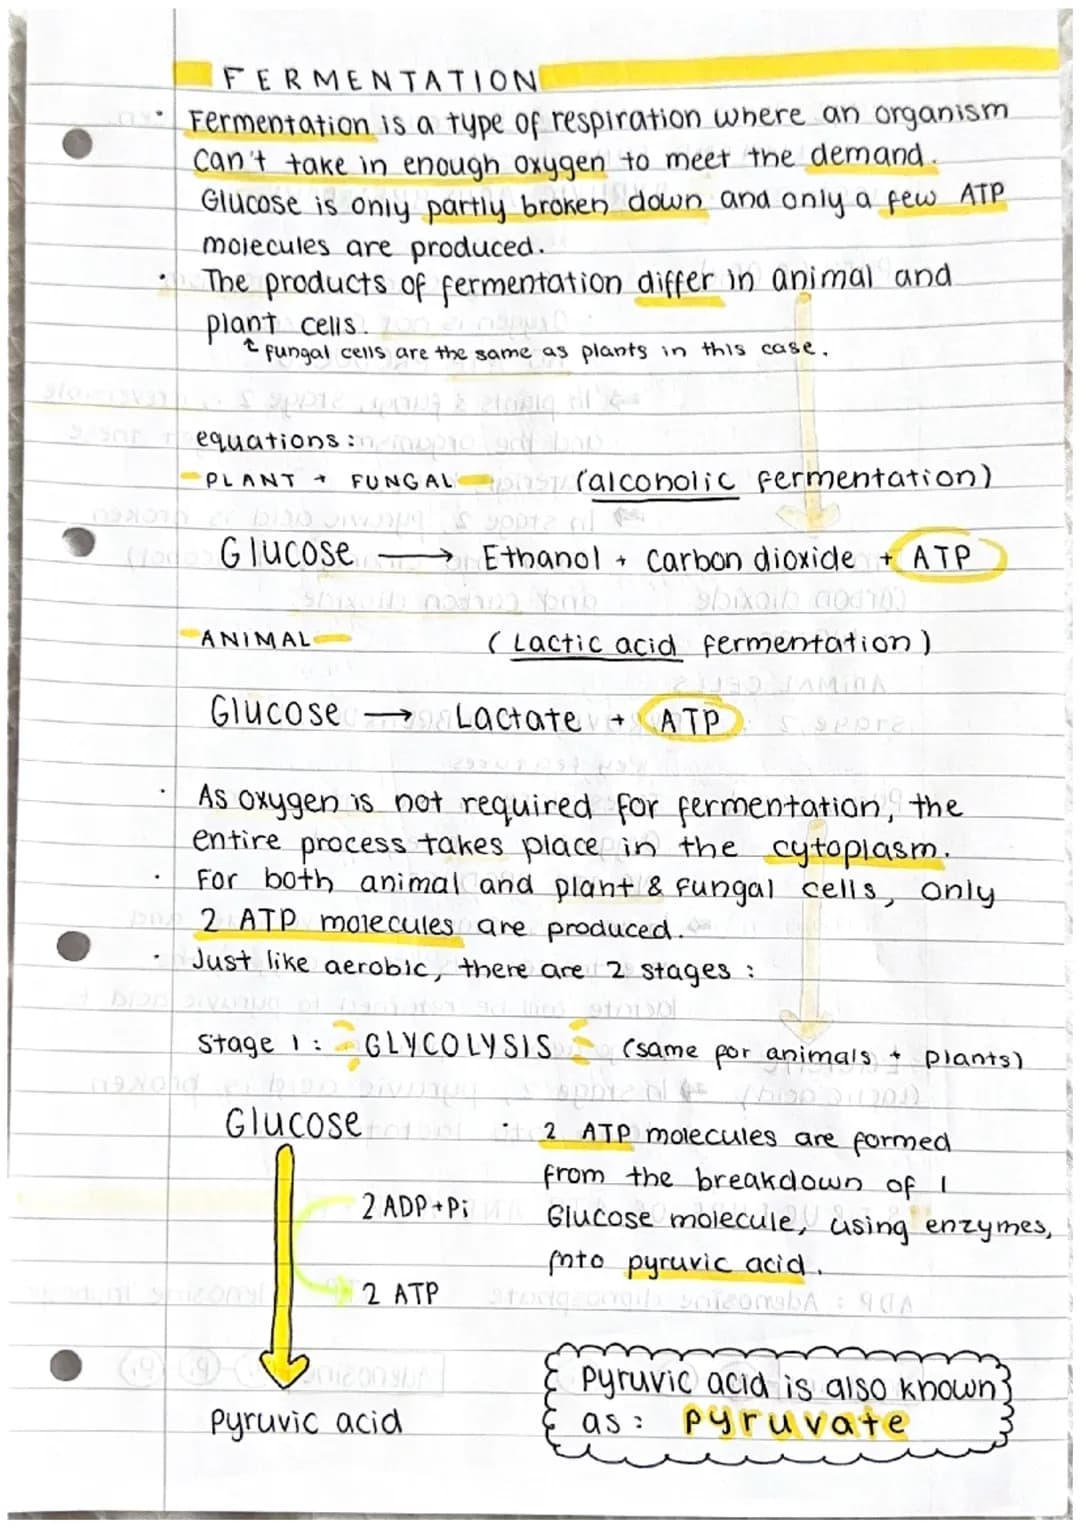 FERMENTATION
· Fermentation is a type of respiration where an organism
can't take in enough oxygen to meet the demand.
Glucose is only partly broken down and only a few ATP
molecules are produced.
· The products of fermentation differ in animal and
plant cells.
fungal cells are the same as plants in this case.
equations:
PLANT + FUNGAL (alcoholic fermentation)
Glucose → Ethanol + Carbon dioxide + ATP
ANIMAL (Lactic acid fermentation)
Glucose → Lactate + ATP
· As oxygen is not required for fermentation, the
entire process takes place in the cytoplasm.
· For both animal and plant & fungal cells, only
2 ATP molecules are produced.
· Just like aerobic, there are 2 stages:
Stage 1: GLYCOLYSIS (same for animals + plants)
Glucose
2 ADP+Pi
2 ATP
Pyruvic acid
· 2 ATP molecules are formed
from the breakdown of 1
Glucose molecule, using enzymes,
into pyruvic acid.
Pyruvic acid is also known
as: pyruvate